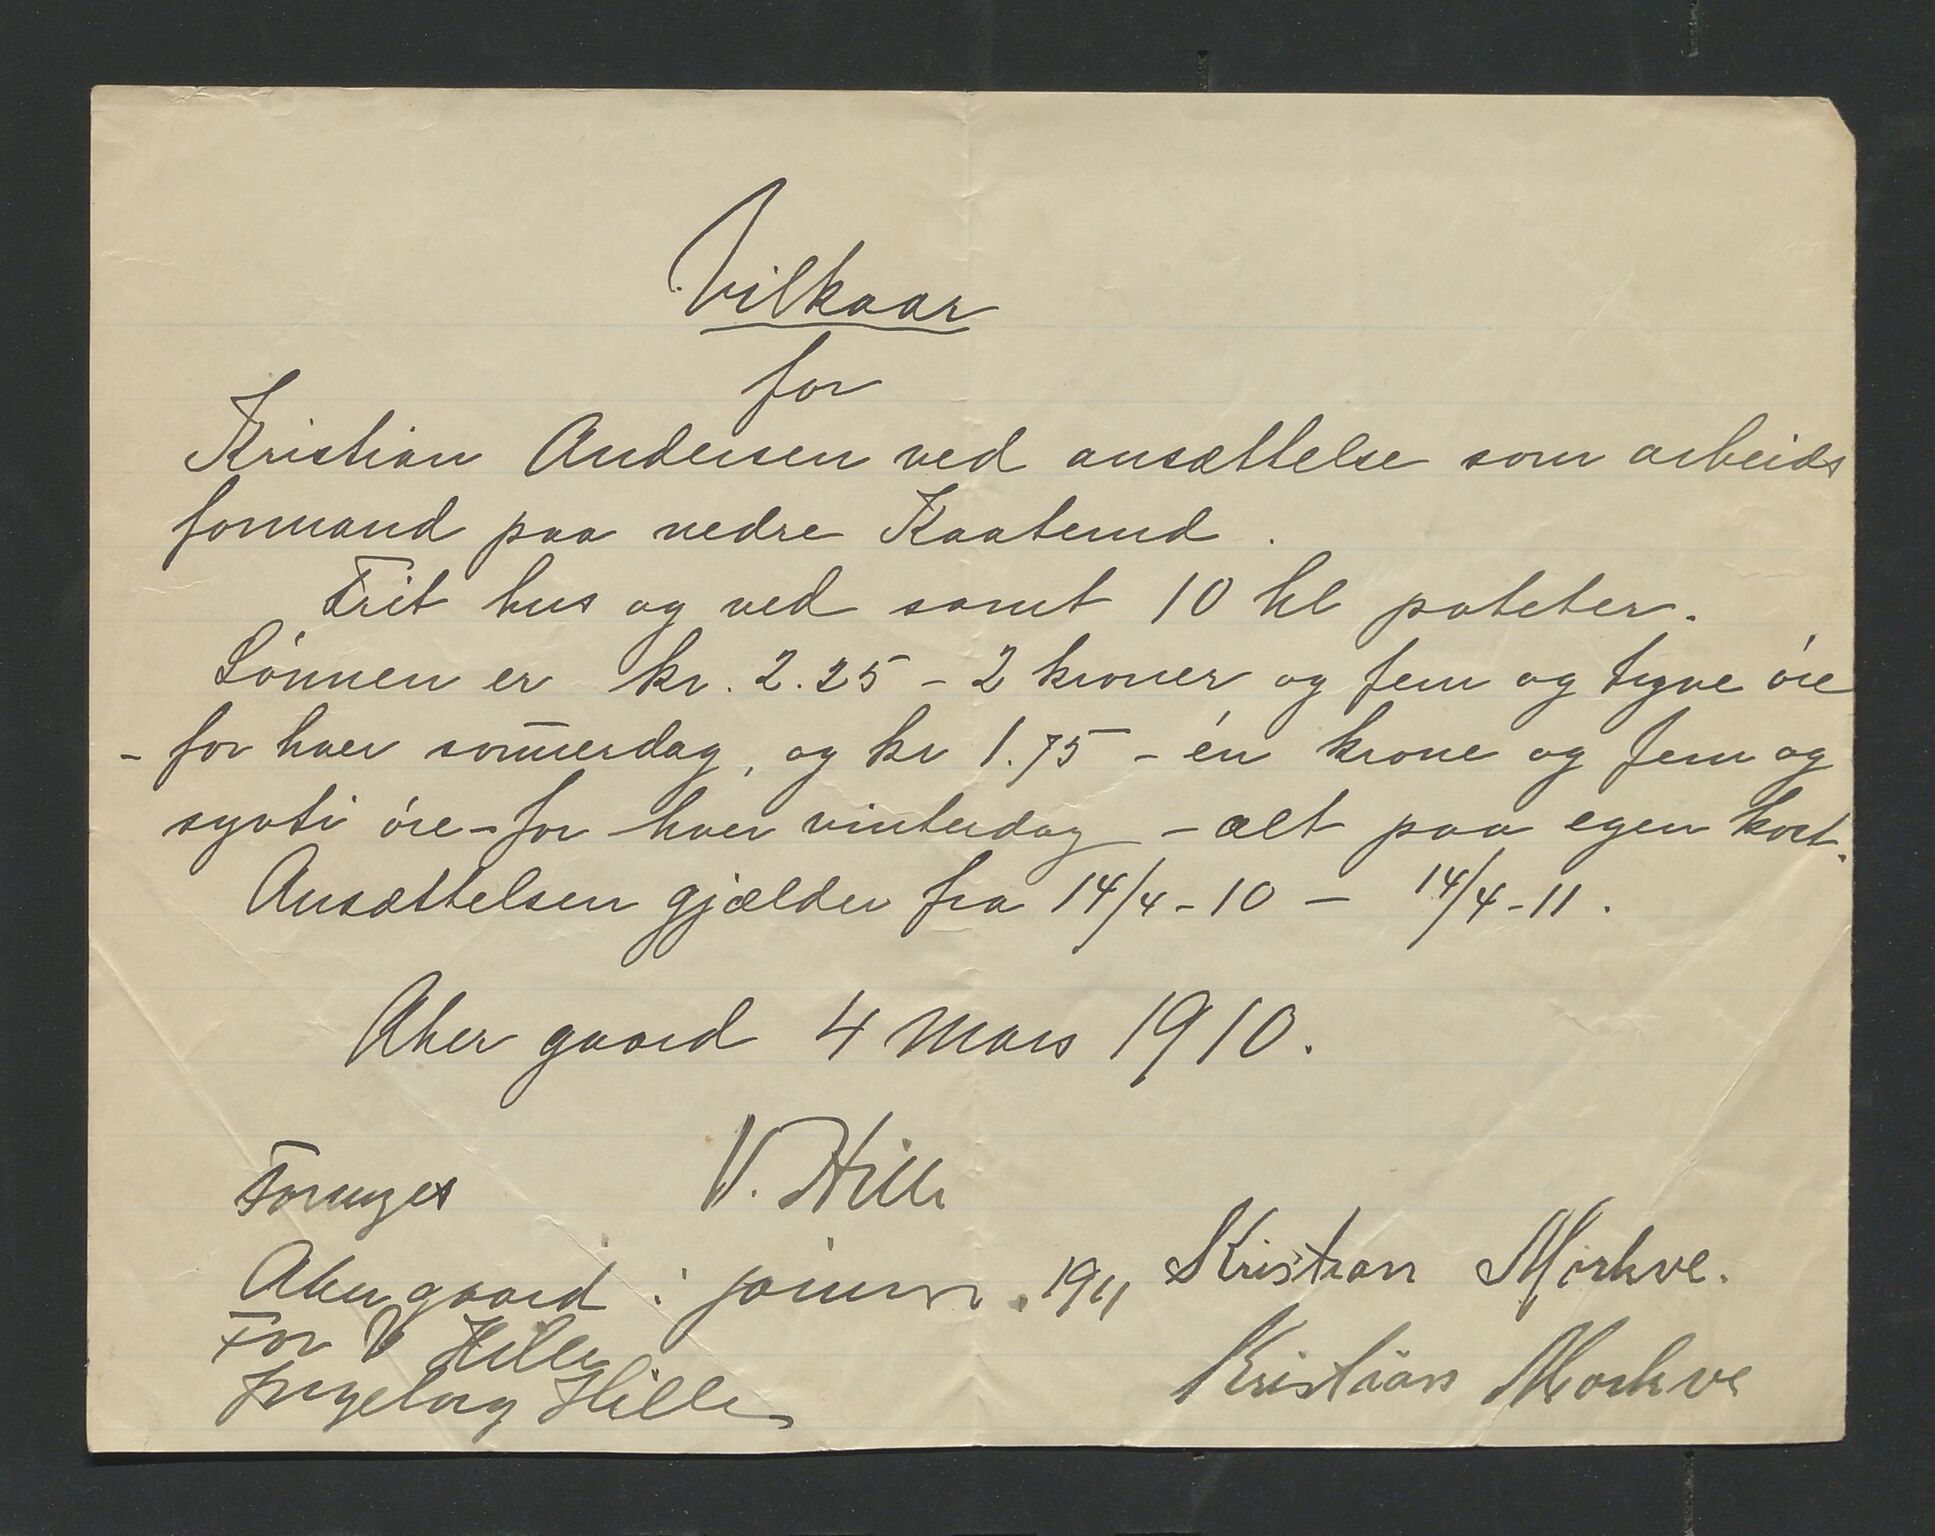 Vilkaar
for
Kristian Andersen ved ansættelse som arbeids
formand paa nedre Kaaterud.
Frit hus og ved samt 10 hl poteter.
Lönnen er kr. 2.25 - 2 kroner og fem og tyve öre
- for hver som̅erdag, og kr 1.75 - én krone og fem og
sytti öre - for hver vinterdag - alt paa egen kost.
Ansættelsen gjælder fra 14/4 - 10 — 14/4 - 11.
Aker gaard 4 Mars 1910.
V. Hille
Fornyes
Aker gaard i januar 1911
Kristian Morkve.
For V Hille
Ingeborg Hille
Kristian Morkve